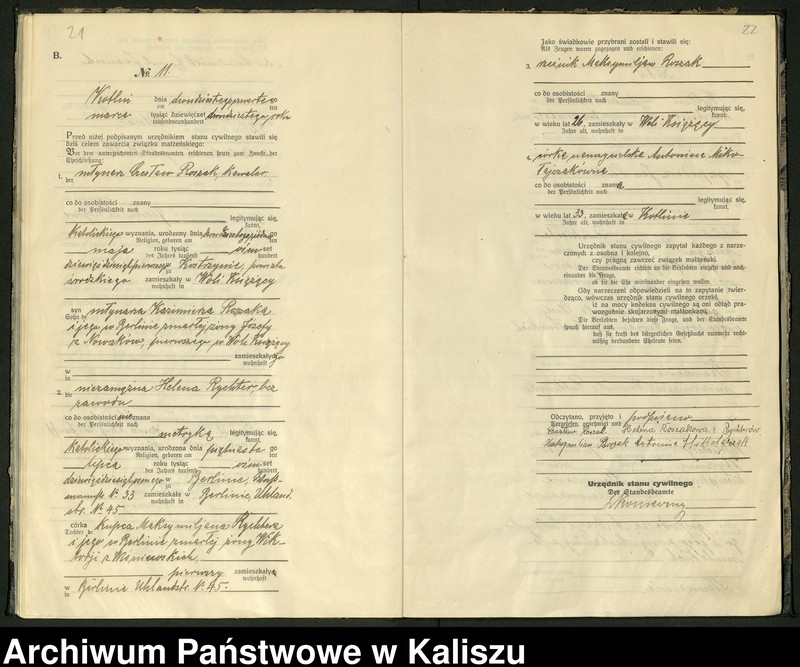 21
B.
№ 11.
Kotlin dnia dwudziestegoczwartego
am ten
marca tysiąc dziewięćset dwudziestego roku
tausendneunhundert
Przed niżej podpisanym urzędnikiem stanu cywilnego stawili się
dziś celem zawarcia związku małżeńskiego:
Vor dem unterzeichneten Standesbeamten erschienen heute zum Zwecke der
Eheschließung:
1. młynarz Czesław Roszak, kawaler
der
co do osobistości znany
der Persönlichkeit nach
legitymując się,
kannt,
katolickiego wyznania, urodzony dnia go
Religion, geboren am ten
maja roku tysiąc ośmset
des Jahres tausend hundert
dziewięćdziesiątpierwszego w Kostrzynie, powiatu
zu
średzkiego zamieszkały w Woli Książęcy
wohnhaft in
syn młynarza Kazimierza Roszaka
Sohn des
i jego w Berlinie zmarłej żony Józefy
z Nowaków, pierwszego w Woli Książęcy
zamieszkałego
wohnhaft
w
in
2. niezamężna Helena Rychter, bez
die
zawodu
co do osobistości nieznana
der Persönlichkeit nach
metryką legitymując się,
kannt,
katolickiego wyznania, urodzona dnia piętnasto go
Religion, geboren am ten
lipca roku tysiąc ośmset
des Jahres tausend hundert
w Berlinie,
zu
№ 33 zamieszkała w Berlinie, Uhland-
wohnhaft in
str. № 45
córka kupca Maksymiljana Rychtera
Tochter des
i jego w Berlinie zmarłej żony Wik-
torji z Wiśniewskich,
pierwszy zamieszkały
wohnhaft
w Berlinie Uhlandstr. № 45.
in
22
Jako świadkowie przybrani zostali i stawili się:
Als Zeugen waren zugezogen und erschienen:
3. rzeźnik Maksymiljan Roszak
co do osobistości znany
der Persönlichkeit nach
legitymując się,
kannt,
w wieku lat 26, zamieszkały w Woli Książęcy
Jahre alt, wohnhaft in
4. córka Antonina Miko-
łajczakówna
co do osobistości znana
der Persönlichkeit nach
legitymując się,
kannt,
w wieku lat 33, zamieszkała w Kotlinie
Jahre alt, wohnhaft in
Urzędnik stanu cywilnego zapytał każdego z narze-
czonych z osobna i kolejno,
czy pragną zawrzeć związek małżeński.
Der Standesbeamte richtete an die Verlobten einzeln und nach-
einander die Frage,
ob sie die Ehe miteinander eingehen wollen.
Gdy narzeczeni odpowiedzieli na to zapytanie twier-
dząco, wówczas urzędnik stanu cywilnego orzekł,
iż na mocy kodeksu cywilnego są oni odtąd pra-
wozgodnie skojarzonymi małżonkami.
Die Verlobten bejahten diese Frage, und der Standesbeamte
sprach hierauf aus,
daß sie kraft des bürgerlichen Gesetzbuchs nunmehr recht-
mäßig verbundene Eheleute seien.
Odczytano, przyjęto i podpisano
Vorgelesen, genehmigt und
Czesław Roszak Helena Roszakowa z Rychterów
Maksymilian Roszak Antonina
Urzędnik stanu cywilnego
Der Standesbeamte
Archiwum Państwowe w Kaliszu